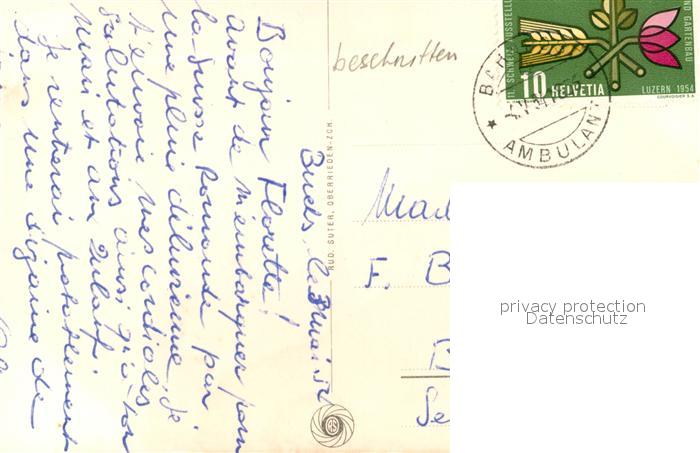 beschnitten
11. SCHWEIZ. AUSSTELL
ND GARTENBAU
10 HELVETIA
LUZERN 1954
COURVOISIER S.A.
AMBULAN
RUD. SUTER, OBERRIEDEN-ZCH.
Buchs, le 3 mai 54
Bonjour Florette!
avant de m'embarquer pour
la Suisse Romande par
une pluie diluvienne, je
t'envoie mes cordiales
salutations ainsi qu'à ton
mari et am
Je rentrerai probablement
dans une dizaine de
Mad
F. B
Se
privacy protection
Datenschutz